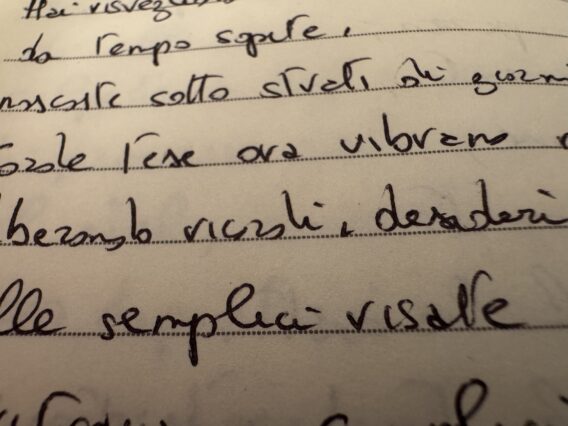 Hai risvegl
da tempo sopite,
nascoste sotto strati di giorni
corde tese ora vibrano
berando ricordi, desideri
lle semplici risate